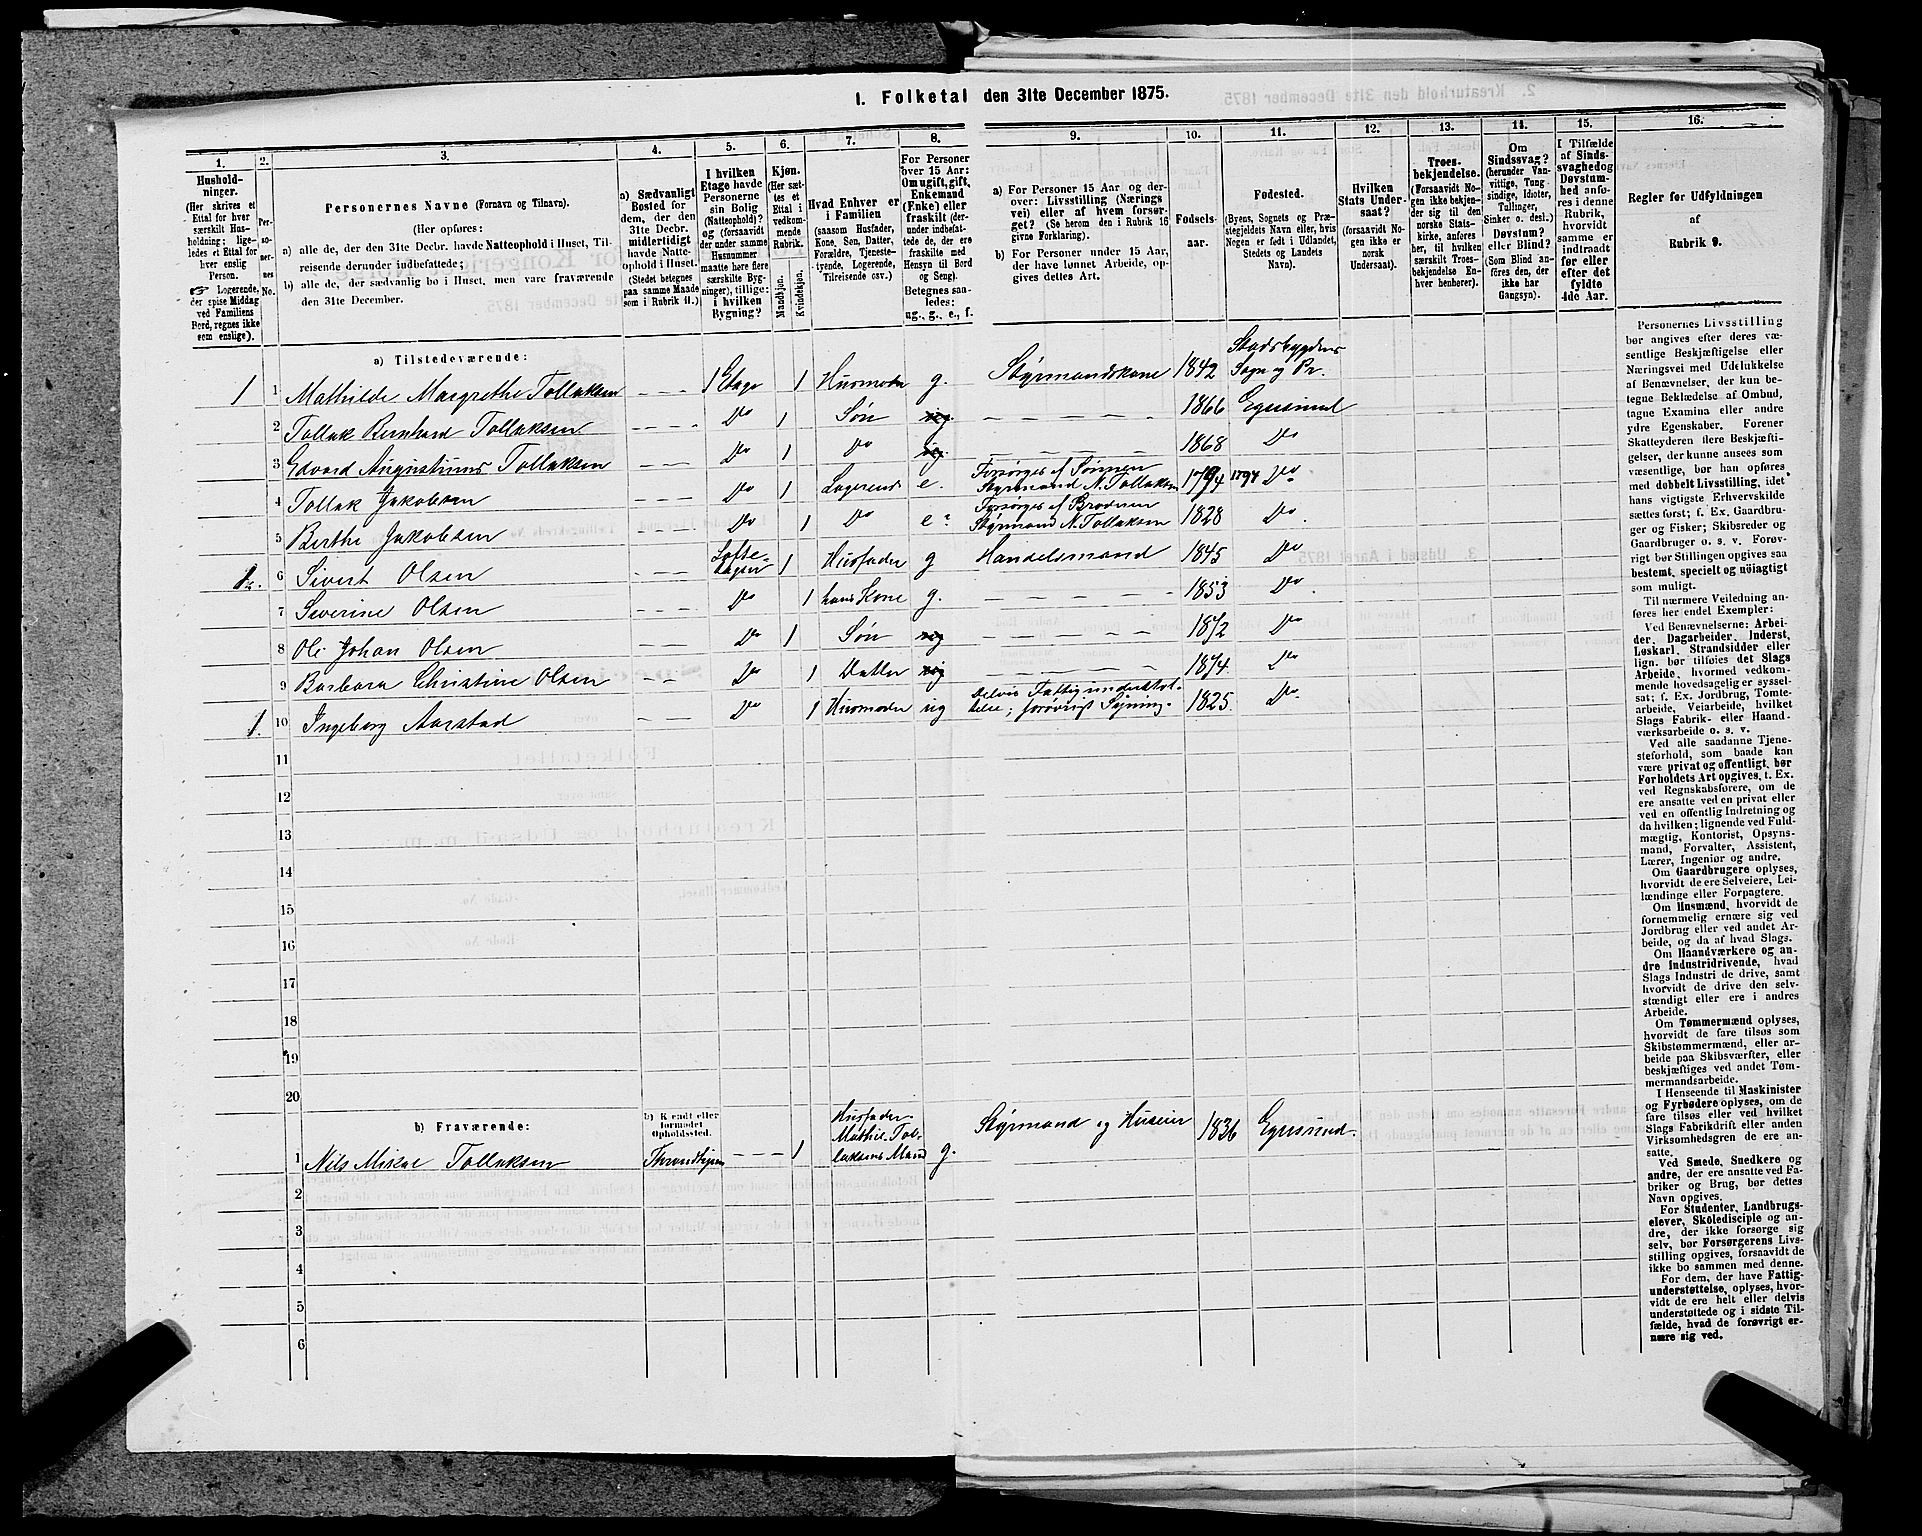 1. Folketal den 31te December 1875.
1. 2. 3. 4. 5. 6. 7. 8. 9. 10. 11. 12. 13. 14. 15. 16.
Hushold-
ninger.
(Her skrives et
Ettal for hver
særskilt Hus-
holdning; lige-
ledes et Ettal for
hver enslig
Person.
Logerende,
der spise Middag
ved Familiens
Bord, regnes ikke
som enslige).
Per-
so-
ner-
nes
No.
Personernes Navne (Fornavn og Tilnavn).
(Her opføres:
a) alle de, der den 31te Decbr. havde Natteophold i Huset, Til-
reisende derunder indbefattede;
b) alle de, der sædvanlig bo i Huset, men vare fraværende
den 31te December.
a) Sædvanligt
Bosted for
dem, der den
31te Decbr.
midlertidigt
havde Natte-
ophold i Huset.
(Stedet betegnes
paa samme Maade
som i Rubrik 11.)
I hvilken
Etage havde
Personerne
sin Bolig
(Natteophold)?
og (forsaavidt
der under samme
Husnummer
maatte høre flere
særskilte Byg-
ninger), tillige:
i hvilken
Bygning?
Kjøn.
(Her sæt-
tes et
Ettal i
vedkom-
mende
Rubrik.
Mandkjøn.
Kvindekjøn.
Hvad Enhver er
i Familien
(saasom Husfader,
Kone, Søn, Datter,
Forældre, Tjeneste-
tyende, Logerende,
Tilreisende osv.)
For Personer
over 15 Aar:
Om ugift, gift,
Enkemand
(Enke) eller
fraskilt (der-
under indbefat-
tede de, der ere
fraskilte med
Hensyn til Bord
og Seng).
Betegnes saa-
ledes:
ug., g., e., f.
a) For Personer 15 Aar og der-
over: Livsstilling (Nærings
vei) eller af hvem forsør-
get? (Se herom den i Rubrik 16
givne Forklaring).
b) For Personer under 15 Aar,
der have lønnet Arbeide, op-
gives dettes Art.
Fødsels-
aar.
Fødested.
(Byens, Sognets og Præ-
stegjeldets Navn eller, hvis
Nogen er født i Udlandet,
Stedets og Landets
Navn).
Hvilken
Stats Under-
saat?
(forsaavidt No-
gen ikke er
norsk
Undersaat).
Troes-
bekjendelse.
(Forsaavidt No-
gen ikke bekjen-
der sig til den
norske Stats-
kirke, anføres
her, til hvilken
særskilt Troes-
bekjendelse En-
hver henhører).
Om
Sindssvag?
(herunder Van-
vittige, Tung-
sindige, Idioter,
Tullinger,
Sinker o. desl.)
Døvstum?
eller Blind?
(Som Blind an-
føres den, der
ikke har
Gangsyn).
I Tilfælde
af Sinds-
svaghed og
Døvstum-
hed anfø-
res i denne
Rubrik,
hvorvidt
samme er
indtraadt
før eller
efter det
fyldte
4de Aar.
Regler før Udfyldningen
af
Rubrik 9.
a) Tilstedeværende:
1 1 Mathilde Margrethe Tollaksen — — — 1 Etage 1 Husmoder g. Styrmandskone 1842 Stadsbygdens Sogn og Pr.
2 Tollak Bernhard Tollaksen — — — Do 1 Søn ug. — — — 1866 Egersund
3 Edvard Augustinus Tollaksen — — — Do 1 Do ug. 1868 Do
4 Tollak Jakobsen — — — Do 1 Logerende e. Forsørges af Sønnen Styrmand N. Tollaksen 1794 1794 Do
5 Berthe Jakobsen — — — Do 1 Do e. Forsørges af Broderen Styrmand N. Tollaksen 1828 Do
1 6 Sivert Olsen — — — Lofts- 1 Husfader g Handelsmand 1845 Do
7 Severine Olsen — — — Do 1 hans Kone g. — — — 1853 Do
8 Ole Johan Olsen — — — Do 1 Søn ug — — — 1872 Do
9 Barbara Christine Olsen — — Do 1 Datter ug — — — 1874 Do
1. 10 Ingeborg Aarstad — — — Do 1 Husmoder ug Delvis Fattigunderstøt- telse; forøvrigt Syning. 1825. Do
11
12
13
14
15
16
17
18
19
20
b) Fraværende:
b) Kjendt eller
formodet
Opholdssted.
1 Nils Mikal Tollaksen Throndhjem — — — 1 Husfader Mathil. Tol- laksens Mand g. Styrmand og Huseier 1836 Egersund.
2
3
4
5
6
Personernes Livsstilling
bør angives efter deres væ-
sentlige Beskjæftigelse eller
Næringsvei med Udelukkelse
af Benævnelser, der kun be-
tegne Beklædelse af Ombud,
tagne Examina eller andre
ydre Egenskaber. Forener
Skatteyderen flere Beskjæfti-
gelser, der kunne ansees som
væsentlige, bør han opføres
med dobbelt Livsstilling, idet
hans vigtigste Erhvervskilde
sættes først; f. Ex. Gaardbru-
ger og Fisker; Skibsreder og
Gaardbruger o. s. v. Forøv-
rigt bør Stillingen opgives saa
bestemt, specielt og nöiagtigt
som muligt.
Til nærmere Veiledning an-
føres her endel Exempler:
Ved Benævnelserne: Arbei-
der, Dagarbeider, Inderst,
Løskarl, Strandsidder eller
lign. bør tilføies det Slags
Arbeide, hvormed vedkom-
mende hovedsagelig er syssel-
sat; f. Ex. Jordbrug, Tomte-
arbeide, Veiarbeide, hvilket
Slags Fabrik- eller Haand-
værksarbeide o. s. v.
Ved alle saadanne Tjene-
steforhold, som baade kan
være privat og offentligt, bør
Forholdets Art opgives, t. Ex.
ved Regnskabsførere, om de
ere ansatte ved en privat eller
ved en offentlig Indretning og
da hvilken; lignende ved Fuld-
mægtig, Kontorist, Opsyns-
mand, Forvalter, Assistent,
Lærer, Ingeniør og andre.
Om Gaardbrugere oplyses,
hvorvidt de ere Selveiere, Lei-
lændinge eller Forpagtere.
Om Husmænd, hvorvidt de
fornemmelig ernære sig ved
Jordbrug eller ved andet Ar-
beide, og da af hvad Slags.
Om Haandværkere og an-
dre Industridrivende, hvad
Slags Industri de drive, samt
hvorvidt de drive den selv-
stændigt eller ere i andres
Arbeide.
Om Tømmermænd oplyses,
hvorvidt de fare tilsøs som
Skibstømmermænd, eller ar-
beide paa Skibsværfter, eller
beskjæftiges ved andet Tøm-
mermandsarbeide.
I Henseende til Maskinister
og Fyrbødere oplyses, om de
fare tilsøs eller ved hvilket
Slags Fabrikdrift eller anden
Virksomhedsgren de ere an-
satte.
Ved Smede, Snedkere og
andre, der ere ansatte ved Fa-
briker og Brug, bør dettes
Navn opgives.
For Studenter, Landbrugs-
elever, Skoledisciple og an-
dre, der ikke forsørge sig
selv, bør Forsørgerens Livs-
stilling opgives, forsaavidt de
ikke bo sammen med denne.
For dem, der have Fattig-
understøttelse, oplyses, hvor-
vidt de ere helt eller delvis
understøttede og i sidste Til-
fælde, hvad de forøvrigt er-
nære sig ved.